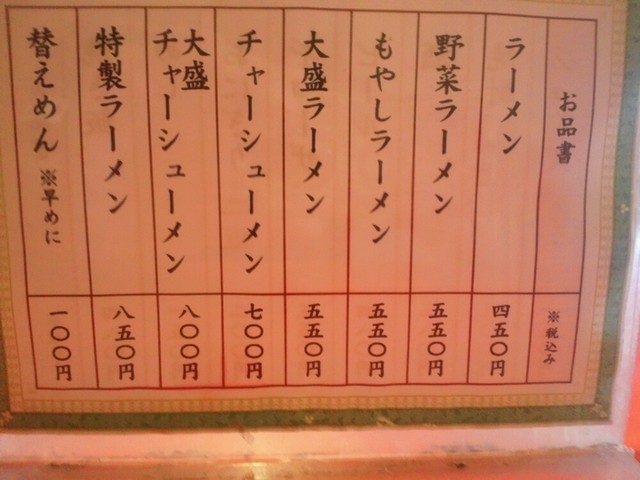 お品書
※税込み
ラーメン
四五〇円
野菜ラーメン
五五〇円
もやしラーメン
五五〇円
大盛ラーメン
五五〇円
チャーシューメン
七〇〇円
大盛
チャーシューメン
八〇〇円
特製ラーメン
八五〇円
替えめん ※早めに
一〇〇円